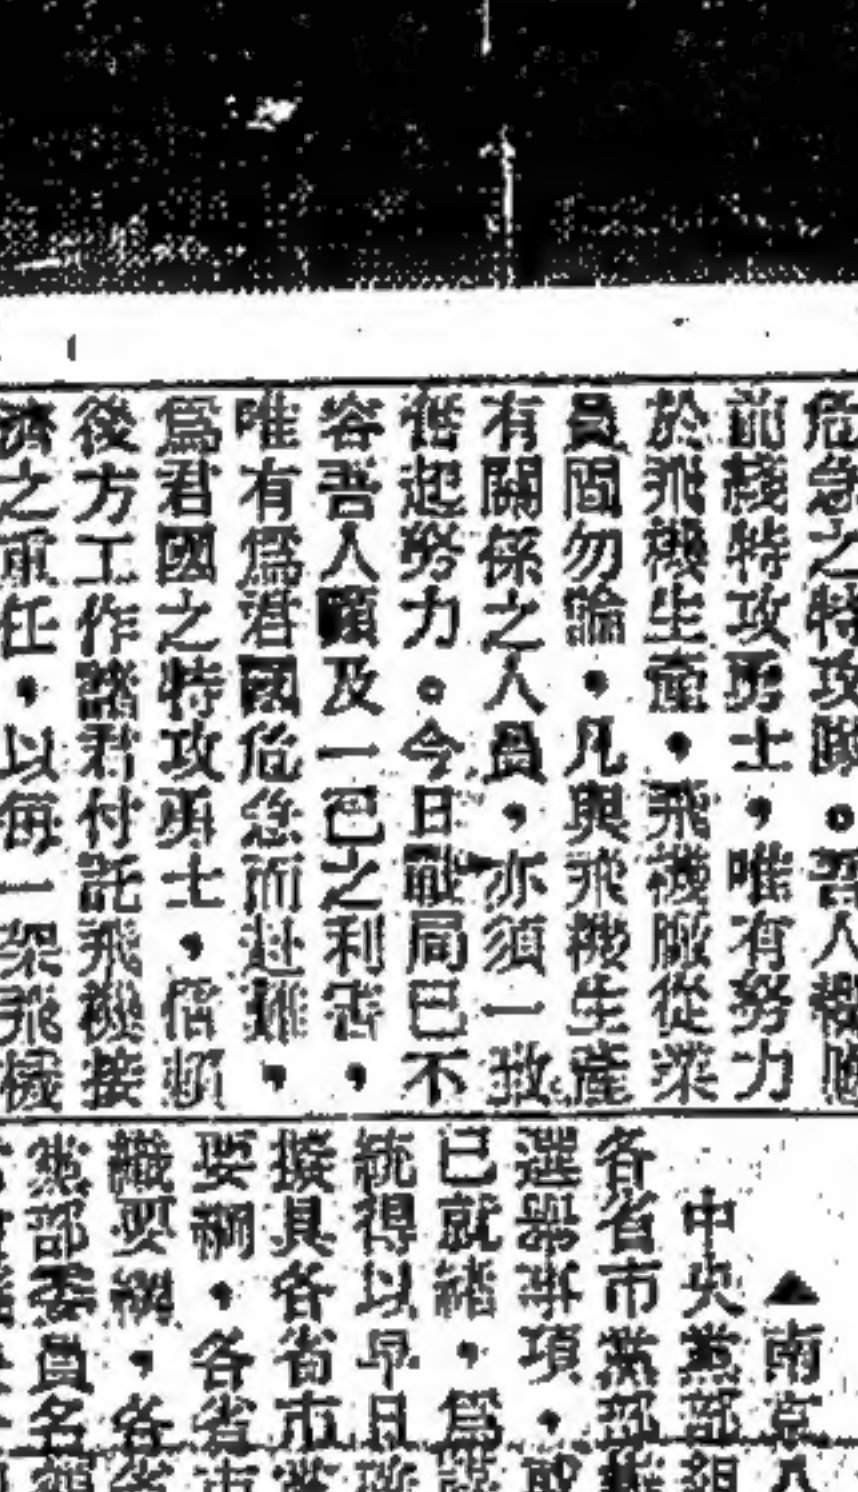 危急之特攻隊。吾人欲
前綫特攻勇士，唯有努力
於飛機生產，飛機廠從業
員間勿論，凡與飛機生產
有關係之人員，亦須一致
奮起努力。今日戰局已不
容吾人顧及一己之利害，
唯有爲君國危急而赴難，
爲君國之特攻勇士，倍
後方工作諸君付託飛機接
濟之重任，以每一架飛機
▲南京八
中央黨部組
各省市黨部
選舉事項，
已就緒，爲
統得以早日
擬具各省市黨
要綱，各省市
織要綱，各省
黨部委員名